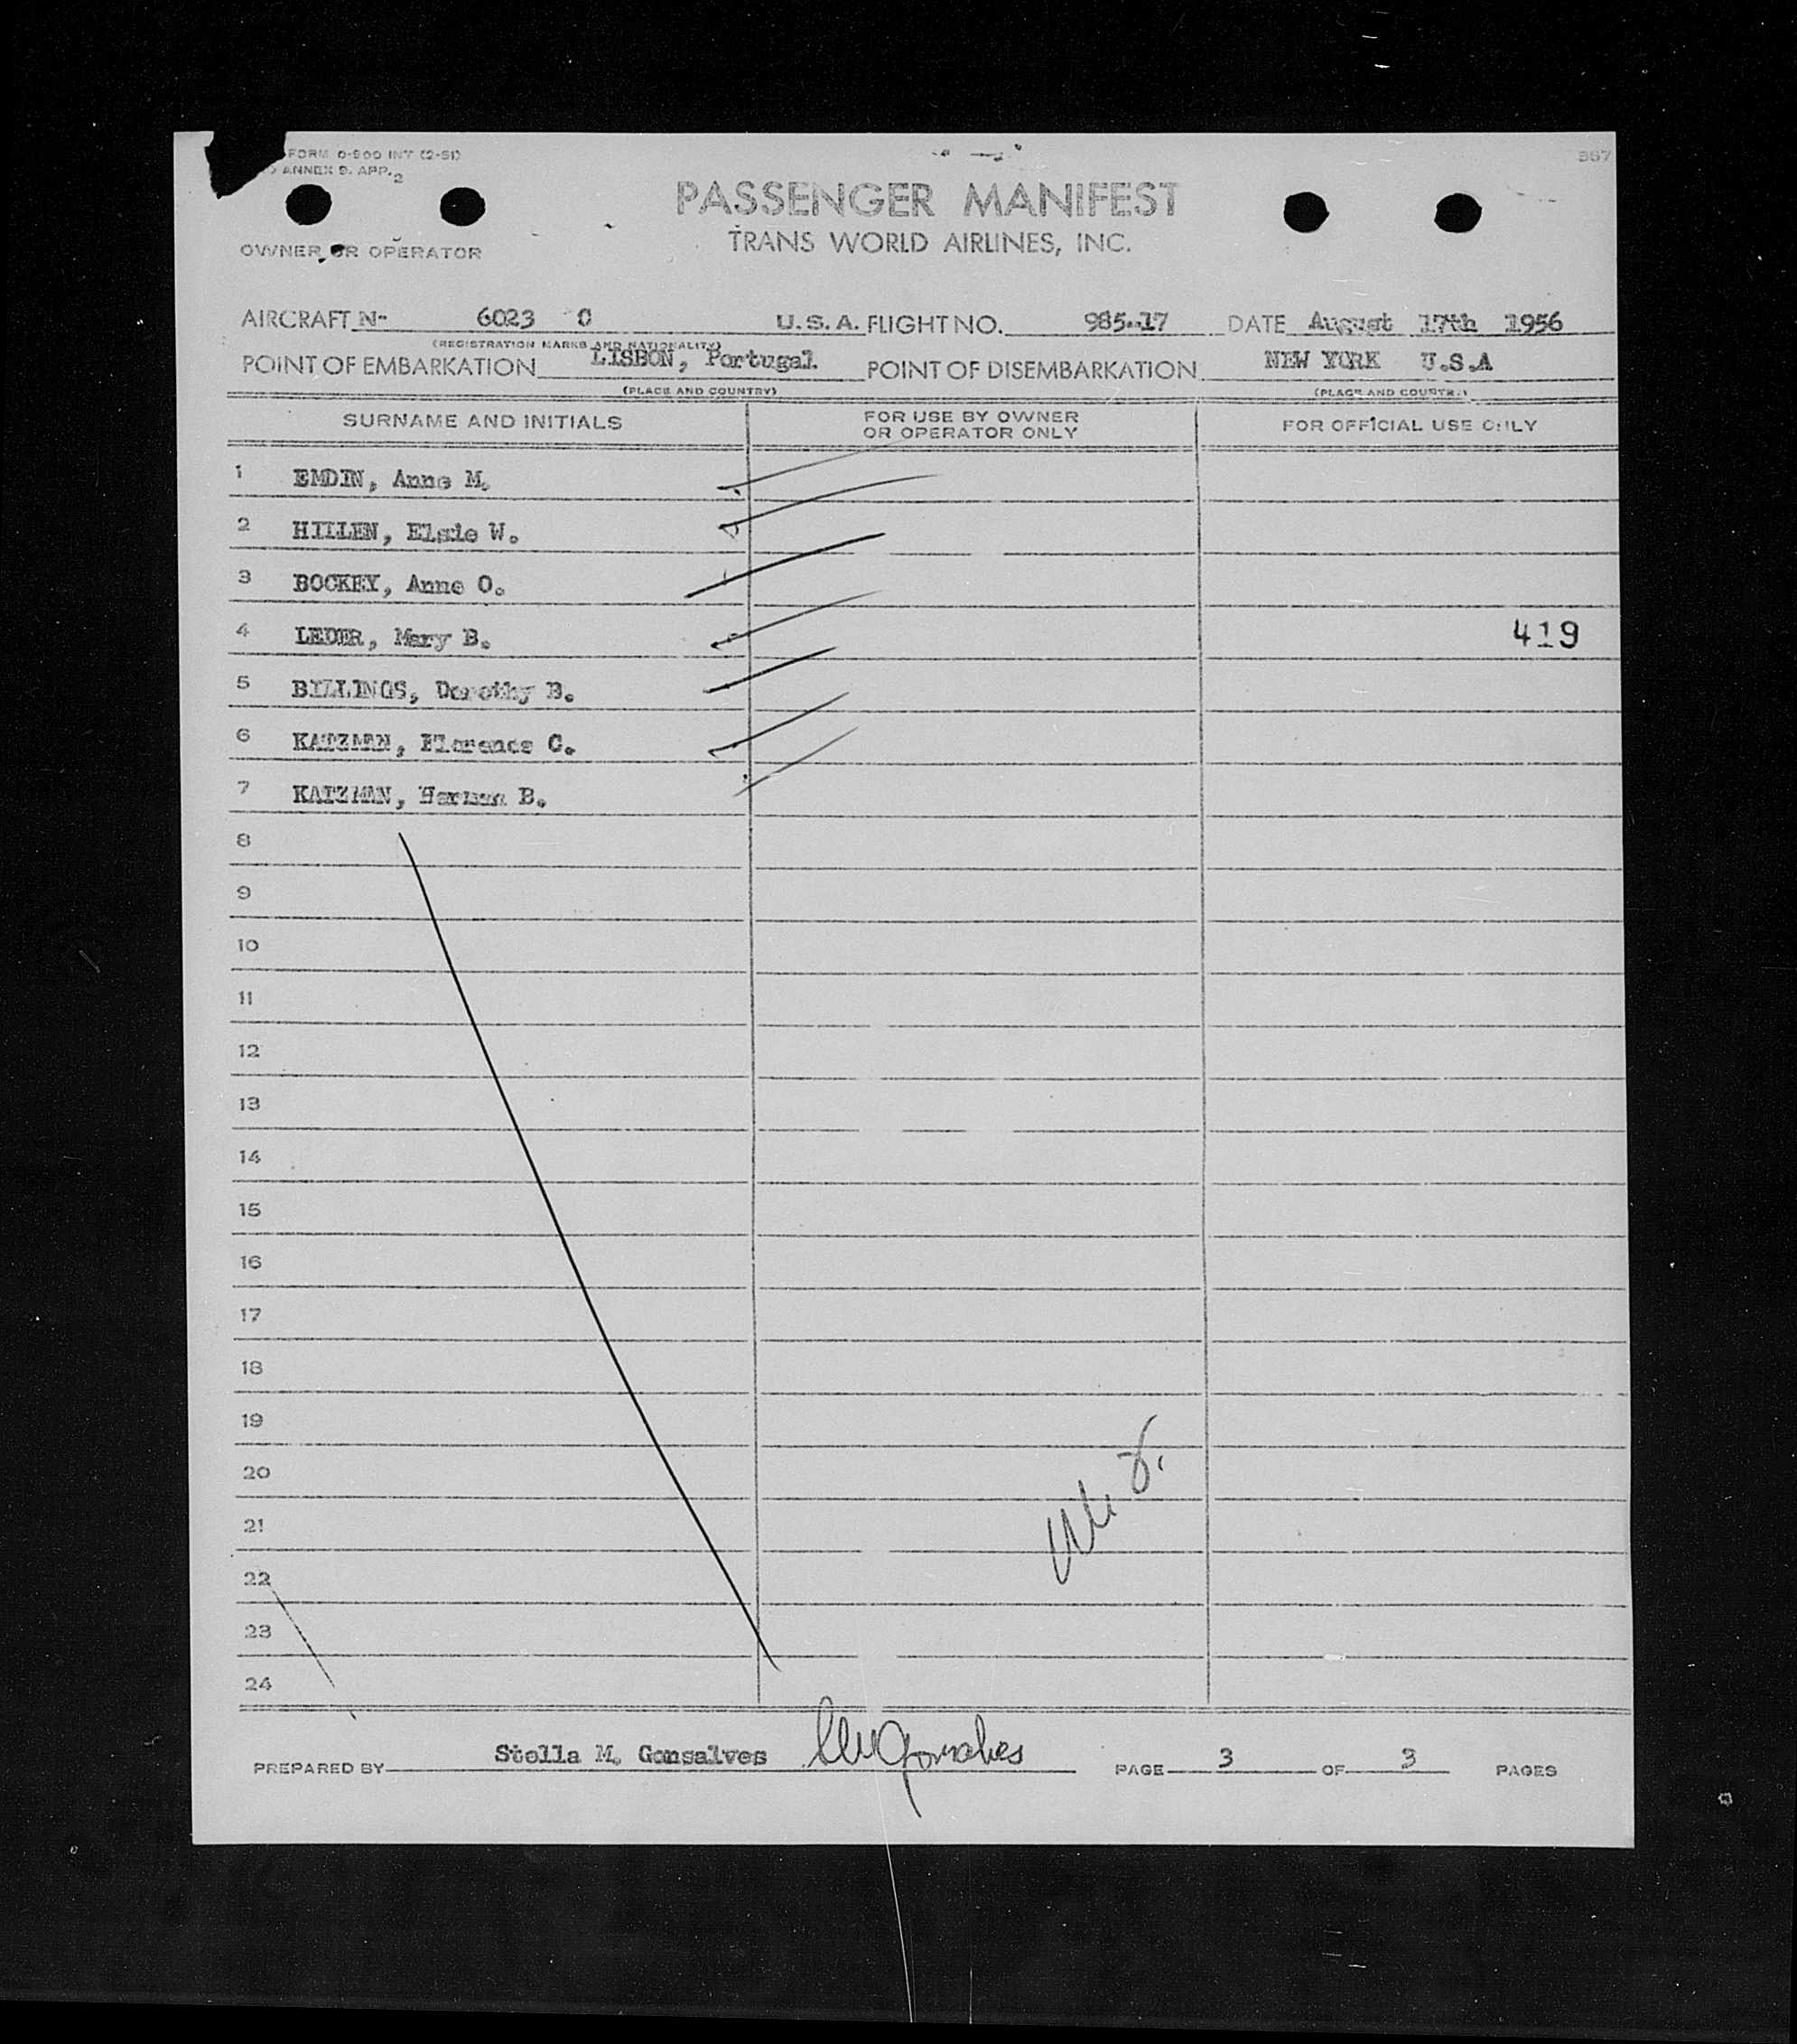 FORM 0-900 INT (2-51)
ANNEX 9. APP. 2
367
PASSENGER MANIFEST
OWNER OR OPERATOR
TRANS WORLD AIRLINES, INC.
AIRCRAFT N- 6023 C U.S.A. FLIGHT NO. 985-17 DATE August 17th 1956
(REGISTRATION MARKS AND NATIONALITY)
POINT OF EMBARKATION LISBON, Portugal. POINT OF DISEMBARKATION NEW YORK U.S.A
(PLACE AND COUNTRY) (PLACE AND COUNTRY)
SURNAME AND INITIALS FOR USE BY OWNER OR OPERATOR ONLY FOR OFFICIAL USE ONLY
1 EMDIN, Anne M.
2 HILLEN, Elsie W.
3 BOCKEY, Anne O.
4 LEDER, Mary B. 419
5 BILLINGS, Dorothy B.
6 KATZMAN, Florence C.
7 KATZMAN, Herman B.
8
9
10
11
12
13
14
15
16
17
18
19
20
21
22
23
24
PREPARED BY Stella M. Gonsalves PAGE 3 OF 3 PAGES